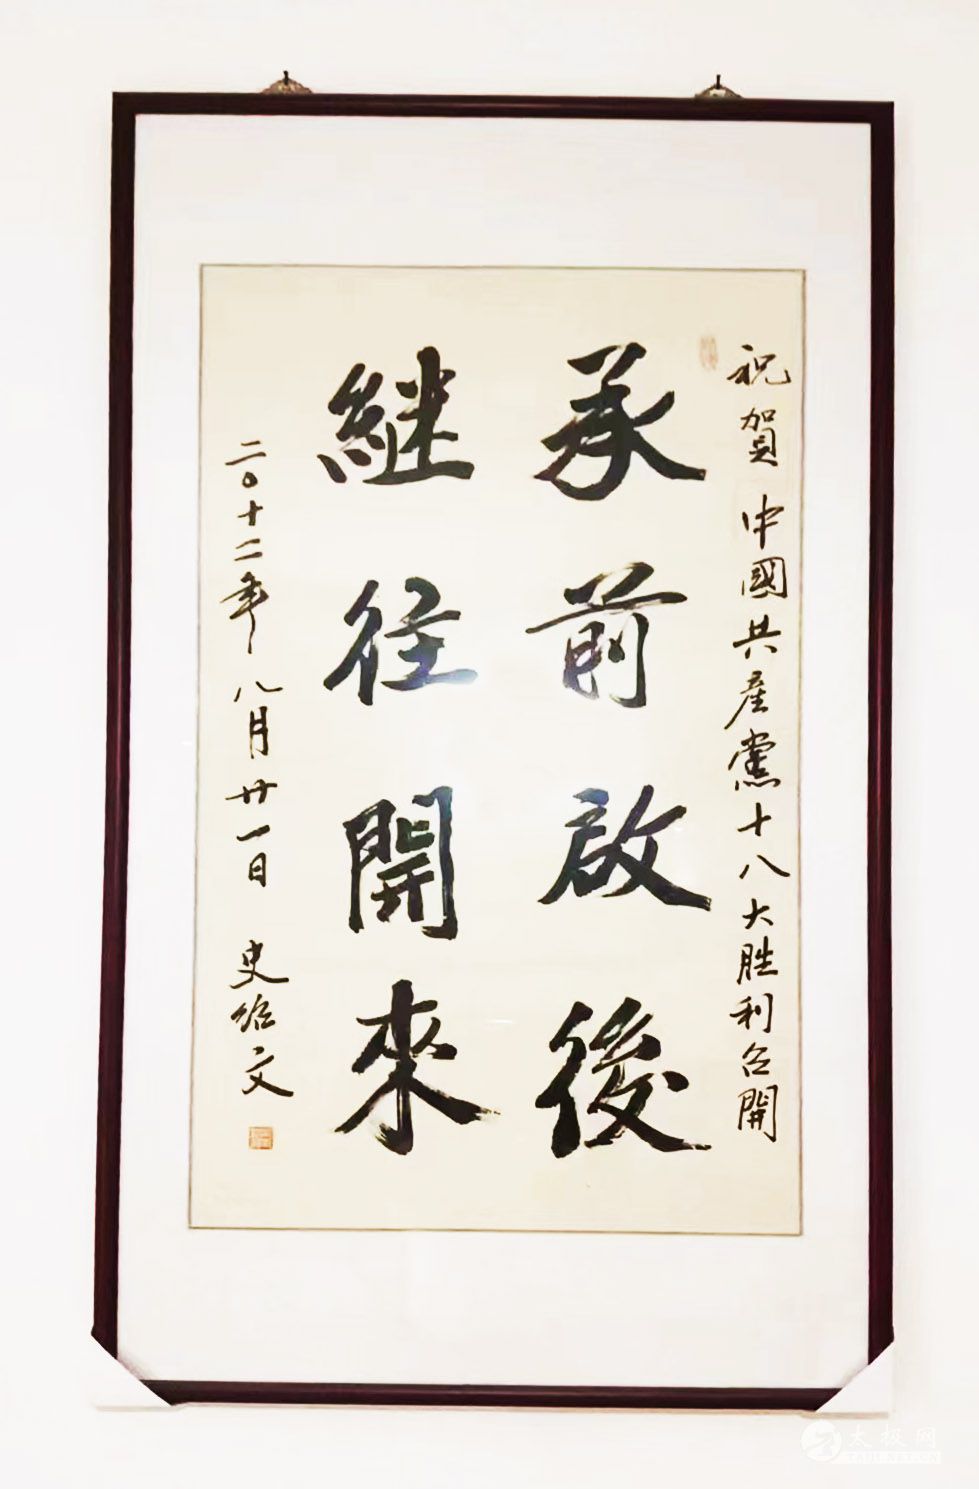 祝賀中國共產黨十八大胜利召開
承前啟後
継往開來
二〇十二年八月廿一日 史紹文
太极网
TAIJI.NET.CN